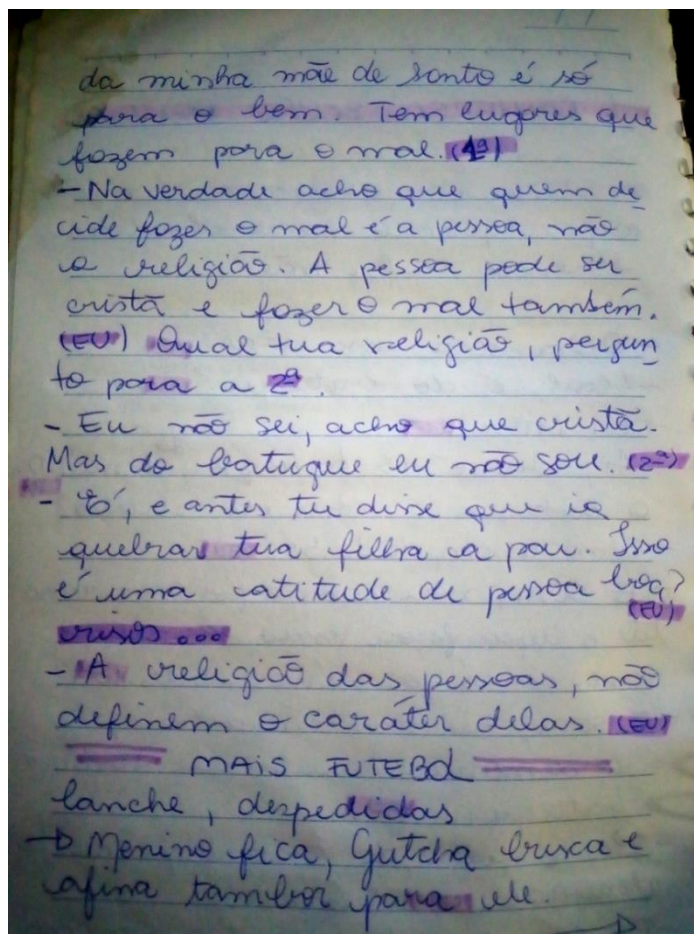 da minha mãe de santo é só
para o bem. Tem lugares que
fazem para o mal. (1ª)
- Na verdade acho que quem de
cide fazer o mal é a pessoa, não
a religião. A pessoa pode ser
cristã e fazer o mal também.
(EU) Qual tua religião, pergun
to para a 2ª.
- Eu não sei, acho que cristã.
Mas do batuque eu não sou. (2ª)
- É, e antes tu disse que ia
quebrar tua filha a pau. Isso
é uma atitude de pessoa boa?
(EU)
risos...
- A religião das pessoas, não
definem o caráter delas. (EU)
MAIS FUTEBOL
lanche, despedidas
→ Menino fica, Gutcha busca e
afina tambor para ele.
→